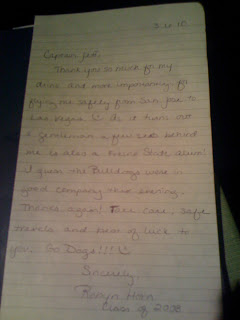 3.6.10
Captain Jeff,
Thank you so much for my
drink and more importantly, for
flying me safely from San Jose to
Las Vegas. As it turns out
a gentleman a few seats behind
me is also a Fresno State alum!
I guess the Bulldogs were in
good company that evening.
Thanks again! Take care, safe
travels and best of luck to
you. Go Dogs!!!!
Sincerely,
Robyn
Class of 2008